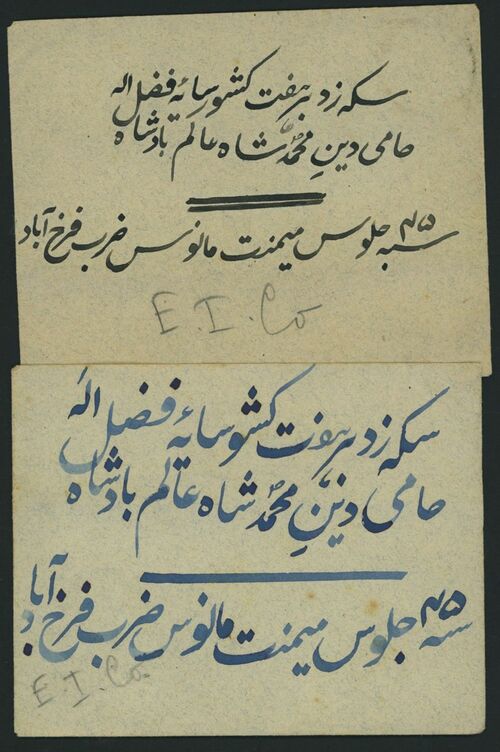 سکہ زد بر ہفت کشور سایۂ فضل الہ
حامی دینِ محمدؐ شاہ عالم بادشاہ
سنہ ۴۵ جلوس میمنت مانوس ضرب فرخ آباد
E. I. Co
سکہ زد بر ہفت کشور سایۂ فضل الہ
حامی دینِ محمدؐ شاہ عالم بادشاہ
سنہ ۴۵ جلوس میمنت مانوس ضرب فرخ آباد
E. I. Co.